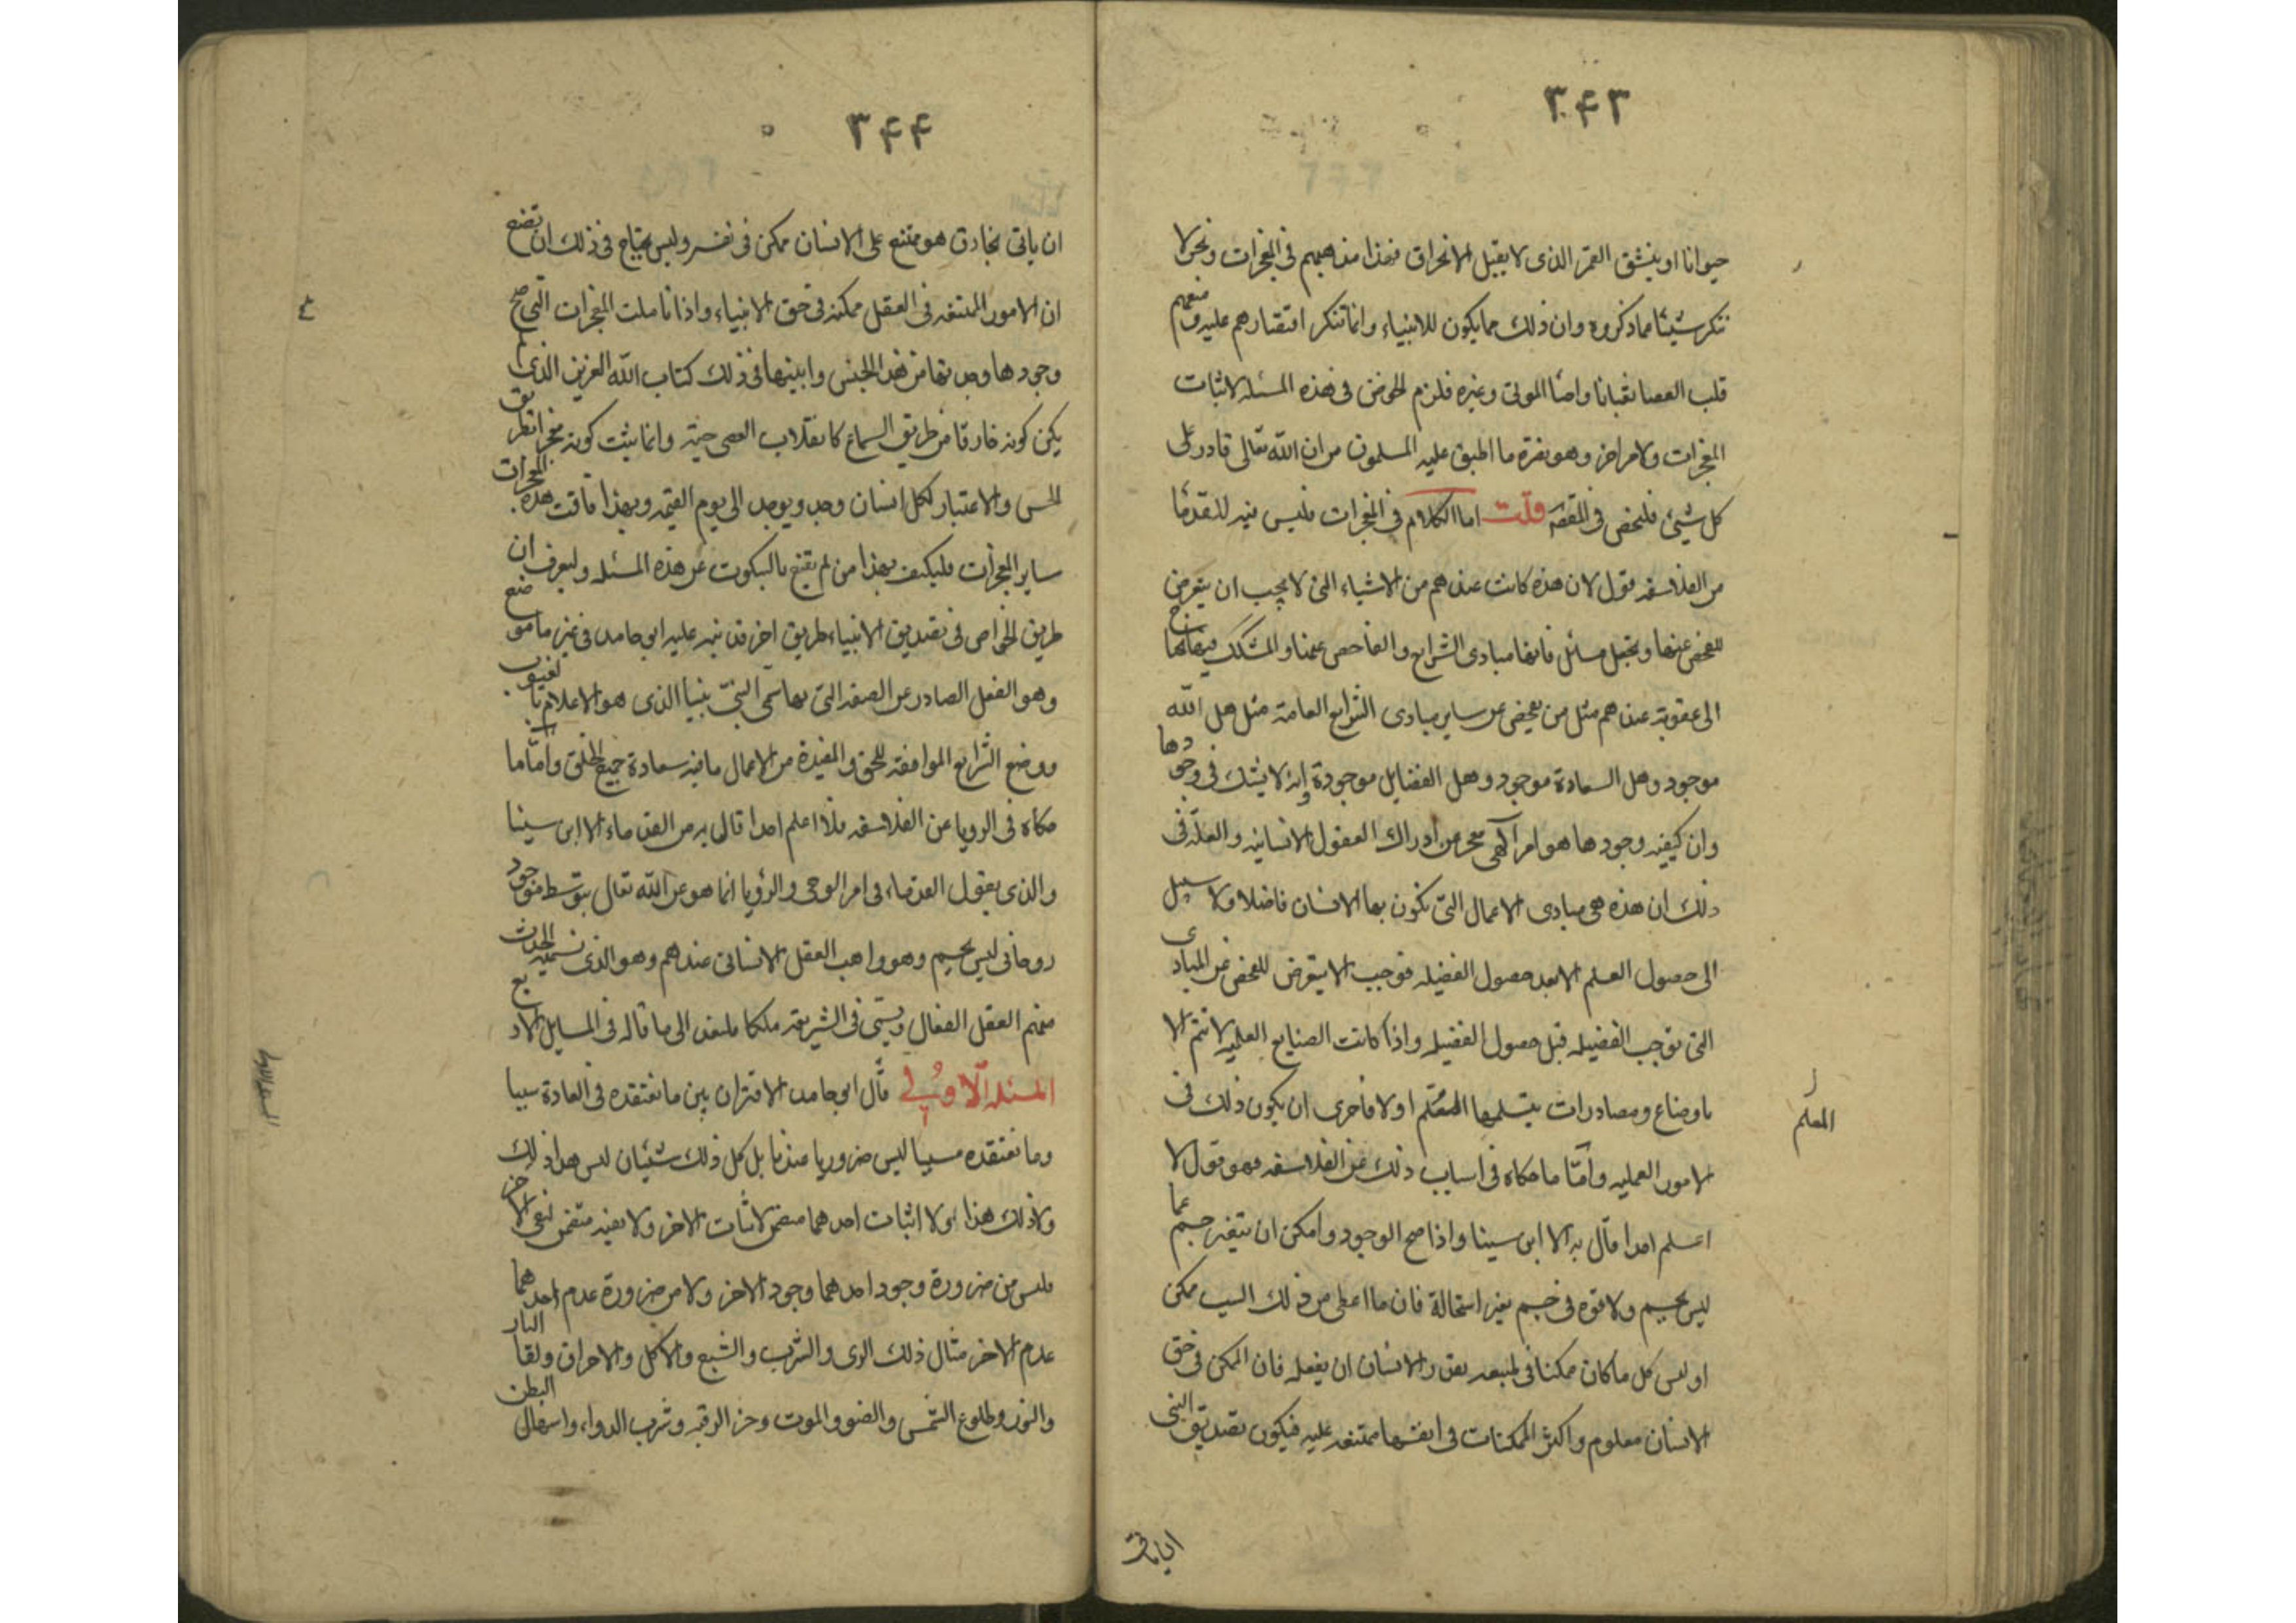 ۳۴۳
حيوانا او ينشق القمر الذى لا يقبل الانخراق فهذا مذهبهم فى المعجزات ونحن لا
ننكر شيئا مما ذكروه وان ذلك مما يكون للانبياء وانما ننكر اقتصارهم عليه ومنعهم
قلب العصا ثعبانا واحياء الموتى وغيره فلزم الخوض فى هذه المسئله لاثبات
المعجزات ولامر اخر وهو نصرة ما اطبق عليه المسلمون من ان الله تعالى قادر على
كل شيئ فلنخض فى المقصود قلت اما الكلام فى المعجزات فليس فيه للقدما
من الفلاسفه قول لان هذه كانت عندهم من الاشياء التى لا يجب ان يتعرض
للفحص عنها وتجعل مسائل فانها مبادى الشرايع والفاحص عنها والمشكك فيها يحتاج
الى عقوبة عندهم مثل من يفحص عن ساير مبادى الشرايع العامة مثل هل الله
موجود وهل السعادة موجود وهل الفضايل موجودة انه لا يشك فى وجودها
وان كيفيه وجودها هو امر الهى معجز عن ادراك العقول الانسانيه والعلة فى
ذلك ان هذه هى مبادى الاعمال التى يكون بها الانسان فاضلا ولا سبيل
الى حصول العلم الا بعد حصول الفضيله فوجب الا يتعرض للفحص عن المبادى
التى توجب الفضيله قبل حصول الفضيله واذا كانت الصنايع العلميه لا تتم الا
باوضاع ومصادرات يتسلمها المتعلم اولا فاحرى ان يكون ذلك فى
المعلم
الامور العمليه وامّا ما حكاه فى اسباب ذلك عن الفلاسفه فهو قول لا
اعلم احدا قال به الا ابن سينا واذا صح الوجود وامكن ان يتغير جسم عما
ليس بجسم ولا قوه فى جسم بغير استحالة فان ما اعطى من ذلك السبب ممكن
او ليس كل ما كان ممكنا فى طبعه يقدر الانسان ان يفعله فان الممكن فى حق
الانسان معلوم واكثر الممكنات فى انفسها ممتنعه عليه فيكون تصديق النبى
۳۴۴
ان ياتى بخارق هو ممتنع على الانسان ممكن فى نفسه وليس يحتاج فى ذلك ان تضع
ان الامور الممتنعه فى العقل ممكنه فى حق الانبياء واذا تاملت المعجزات التى صح
وجودها وجدتها من هذا الجنس وابينها فى ذلك كتاب الله العزيز الذى لم
يكن كونه خارقا من طريق السماع كانقلاب العصى حية وانما يثبت كونه معجزا بطريق
الحس والاعتبار لكل انسان وجد ويوجد الى يوم القيمه وبهذا فاقت هذه المعجزات
ساير المعجزات فليكتف بهذا من لم يقنع بالسكوت عن هذه المسئله وليعرف ان
طريق الخواص فى تصديق الانبياء طريق اخر قد نبه عليه ابو حامد فى غير ما موضع
وهو الفعل الصادر عن الصفه التى بها سمى النبى نبيا الذى هو الاعلام بالغيوب
ووضع الشرايع الموافقه للحق والمفيدة من الاعمال ما فيه سعادة جميع الخلق وامّا ما
حكاه فى الرويا عن الفلاسفه فلا اعلم احدا قال به من القدماء الا ابن سينا
والذى يقول القدماء فى امر الوحى والرؤيا انما هو عن الله تعالى بتوسط موجود
روحانى ليس بجسم وهو واهب العقل الانسانى عندهم وهو الذى تسميه الحدث
منهم العقل الفعال ويسمى فى الشريعه ملكا فلنعد الى ما قاله فى المسايل الاربع
المسئله الاولى قال ابو حامد الاقتران بين ما نعتقده فى العادة سببا
وما نعتقده مسببا ليس ضروريا عندنا بل كل ذلك شيئان ليس هذا ذلك
ولا ذلك هذا ولا اثبات احدهما متضمن لاثبات الاخر ولا نفيه متضمن لنفى الاخر
فليس من ضرورة وجود احدهما وجود الاخر ولا من ضرورة عدم احدهما
عدم الاخر مثال ذلك الرى والشرب والشبع والاكل والاحراق ولقا النار
والنور وطلوع الشمس والضو والموت وحز الرقبه وشرب الدواء واسهال البطن